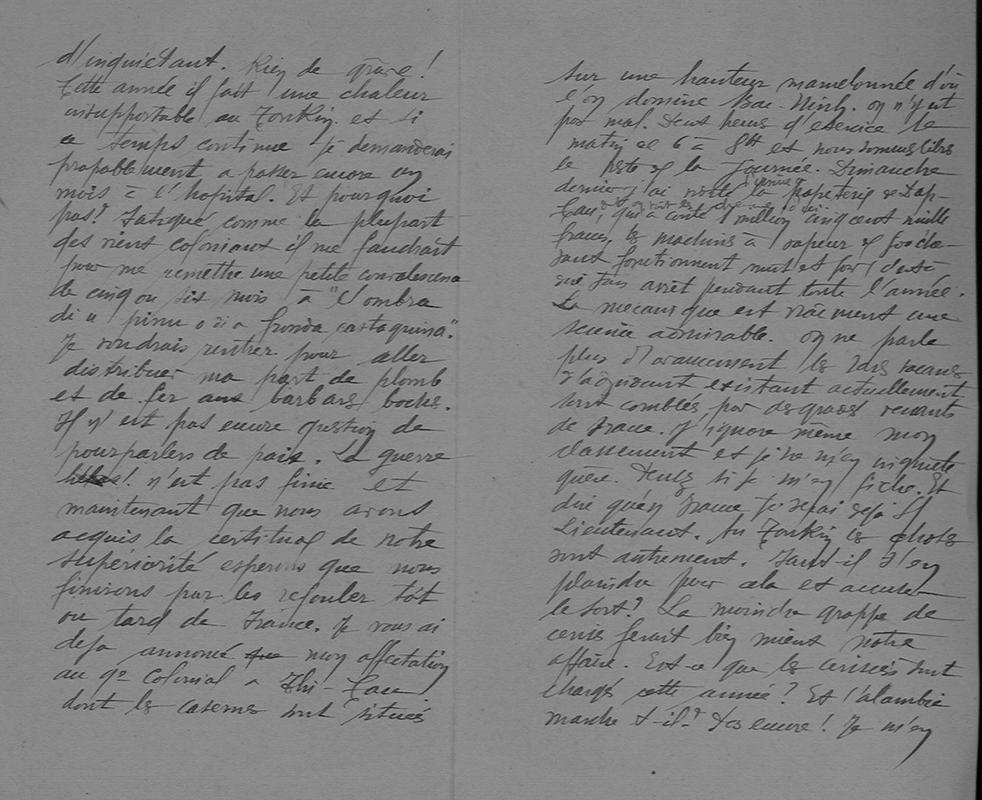 d'inquiétant. Rien de grave!
Cette année il fait une chaleur
insupportable au Tonkin et si
ce temps continue je demanderai
probablement a passer encore un
mois à l'hopital. Et pourquoi
pas? Fatigué comme la plupart
des viens coloniaux il me faudrait
pour me remettre une petite convalescence
de cinq ou six mois à "l'ombra
di u pinu o di a fronda castagnina".
Je voudrais rentrer pour aller
distribuer ma part de plomb
et de fer aux barbares boches.
Il n'est pas encore question de
pourparlers de paix. La guerre
hélas! n'est pas finie et
maintenant que nous avons
acquis la certitude de notre
supériorité esperons que nous
finirons par les refouler tôt
ou tard de France. Je vous ai
deja annoncé que mon affectation
au 9e Colonial a Thi-Cau
dont les casernes sont situées
sur une hauteur mamelonnée d'où
l'on domine Bac-Ninh. on n'y est
pas mal. Deux heures d'exercice le
matin de 6 à 8h et nous sommes libres
le reste de la journée. Dimanche
dernier j'ai visité la papeterie de Dap-
Cau, qui a couté 1 million cinq cent mille
francs, les machines à vapeur
fonctionnent nuit et jour
sans arrêt pendant toute l'année.
La mecanique est vraiment une
science admirable. On ne parle
plus d'avancement les vacances
d'adjudant existant actuellement
sont comblés par des gradés venants
de France. J'ignore même mon
classement et je ne m'en inquiète
guère. si je m'en fiche. Et
dire qu'en France je serai deja S/
Lieutenant. Au Tonkin les choses
sont autrement. Faut-il s'en
plaindre pour cela et accuser
le sort? La moindre grappe de
cerises ferait bien mieux notre
affaire. Est-ce que les cerisiers sont
chargés cette année? Et l'alambic
marche t-il? Pas encore! Je m'en